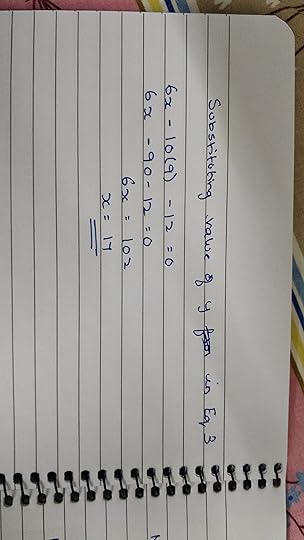 Substituting value of y in Eq 3
6x - 10(9) - 12 = 0
6x - 90 - 12 = 0
6x = 102
x = 17